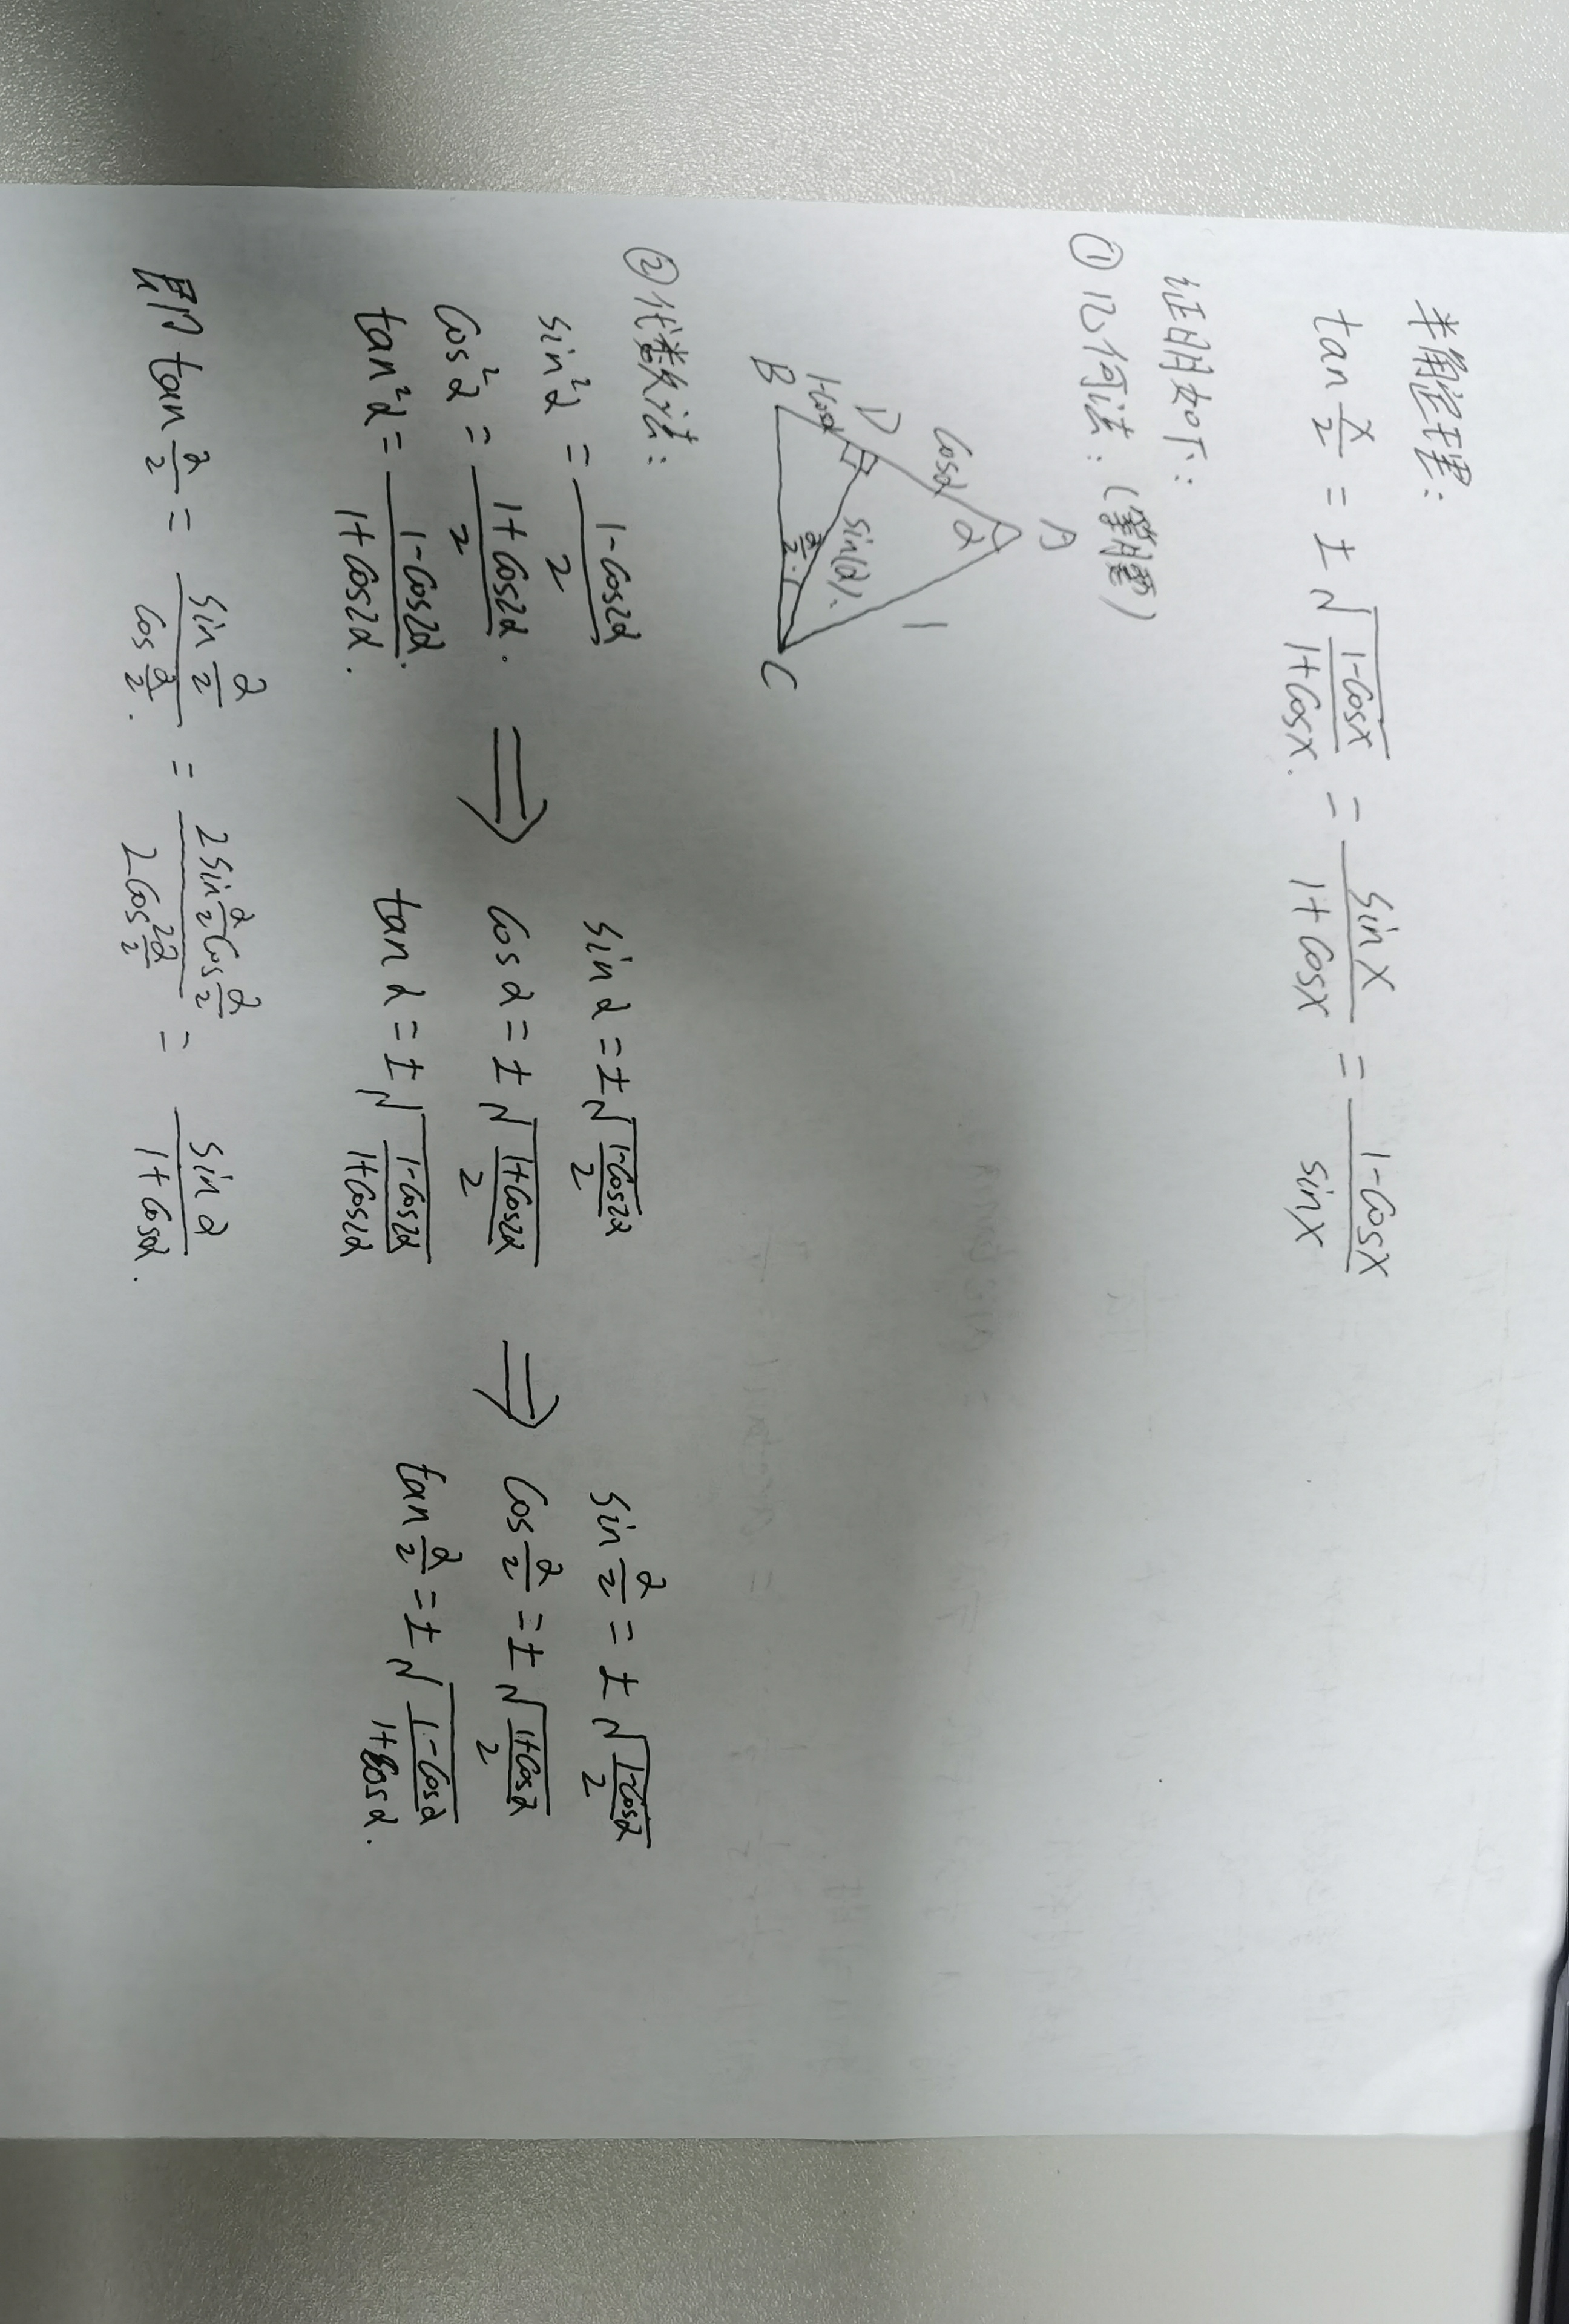 半角定理：
tan x/2 = ±√((1-cosx)/(1+cosx)). = sinx/(1+cosx) = (1-cosx)/sinx
证明如下：
① 几何法：（等腰）
A
α 1
cosα
D sin(α).
1-cosα α/2
B C
② 代数法：
sin²α = (1-cos2α)/2
cos²α = (1+cos2α)/2. ⟹
tan²α = (1-cos2α)/(1+cos2α).
sinα = ±√((1-cos2α)/2)
cosα = ±√((1+cos2α)/2) ⟹
tanα = ±√((1-cos2α)/(1+cos2α))
sin α/2 = ±√((1-cosα)/2)
cos α/2 = ±√((1+cosα)/2)
tan α/2 = ±√((1-cosα)/(1+cosα)).
tan α/2 = (sin α/2)/(cos α/2). = (2sin α/2 cos α/2)/(2cos² α/2) = sinα/(1+cosα).